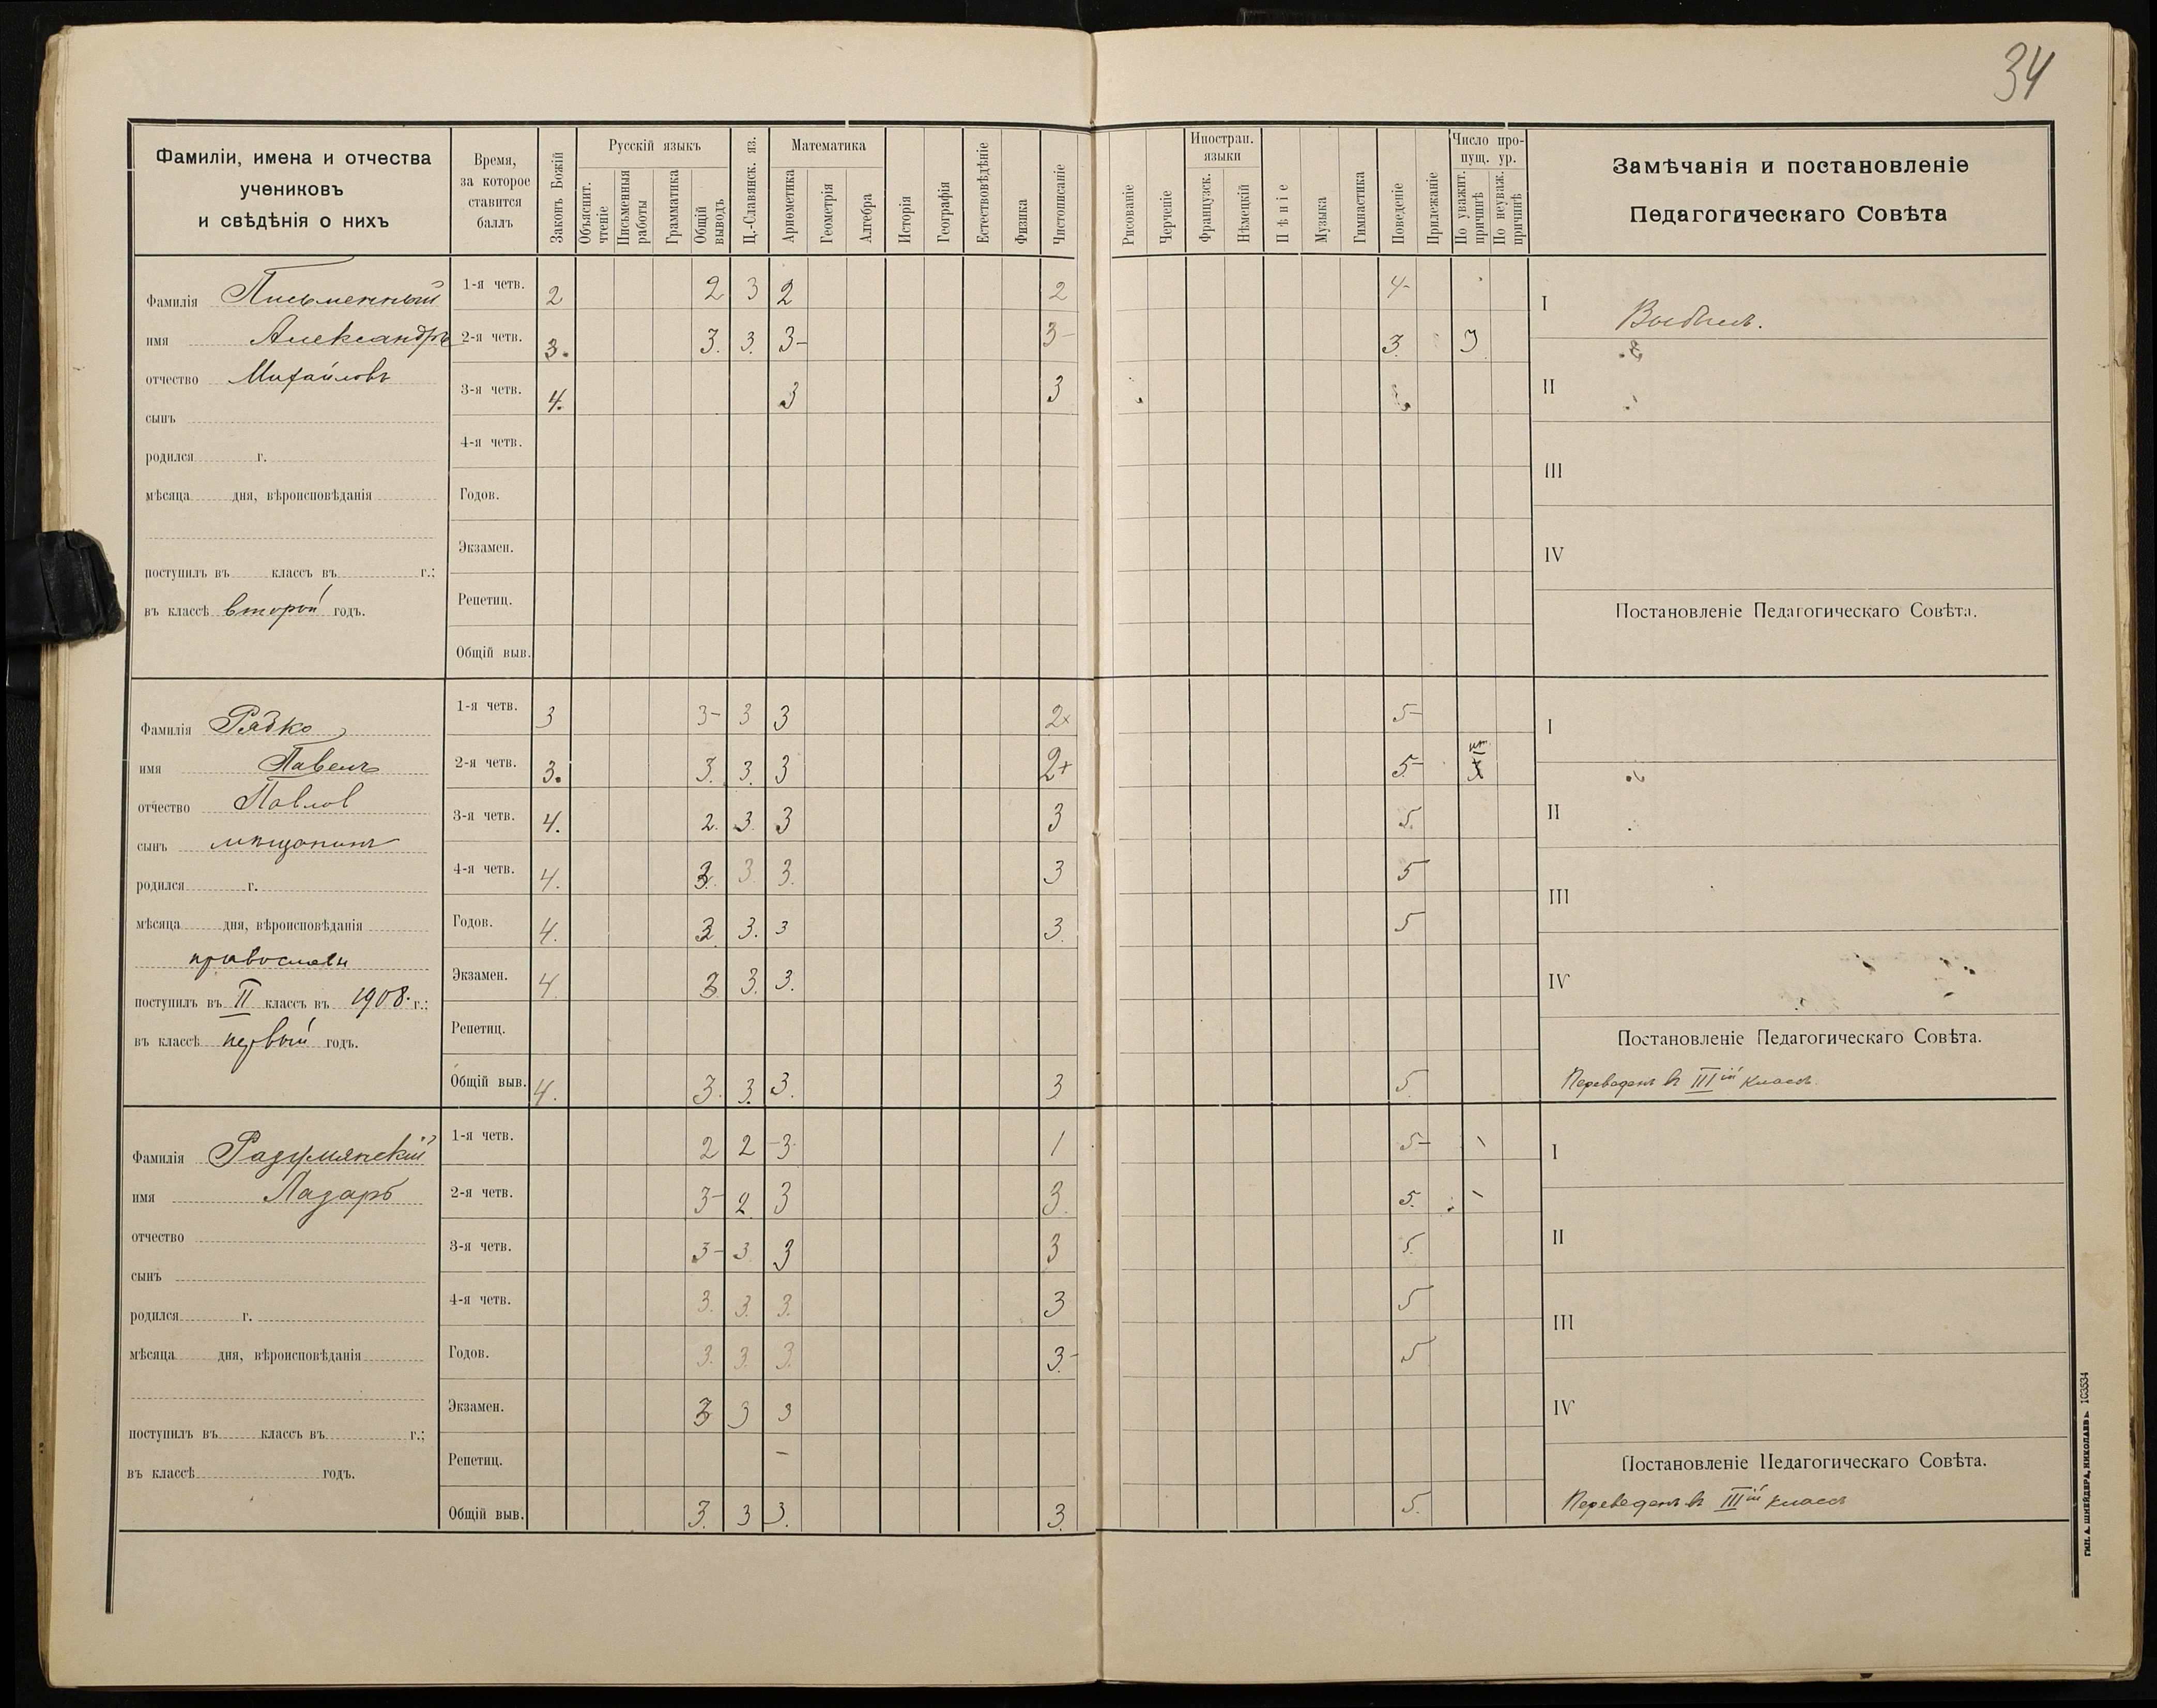 34
Фамиліи, имена и отчества
учениковъ
и свѣдѣнія о нихъ
Время,
за которое
ставится
баллъ
Законъ Божій
Русскій языкъ
Объяснит.
чтеніе
Письменныя
работы
Грамматика
Общій
выводъ
Ц.-Славянск. яз.
Математика
Ариѳметика
Геометрія
Алгебра
Исторія
Географія
Естествовѣдѣніе
Физика
Чистописаніе
Рисованіе
Черченіе
Иностран.
языки
Французск.
Нѣмецкій
Пѣніе
Музыка
Гимнастика
Поведеніе
Прилежаніе
Число про-
пущ. ур.
По уважит.
причинѣ
По неуваж.
причинѣ
Замѣчанія и постановленіе
Педагогическаго Совѣта
Фамилія Письменный
имя Александръ
отчество Михайловъ
сынъ
родился г.
мѣсяца дня, вѣроисповѣданія
поступилъ въ классъ въ г.;
въ классѣ второй годъ.
1-я четв. 2 2 3 2 2 4-
2-я четв. 3. 3. 3. 3- 3- 3. 3
3-я четв. 4. 3 3
4-я четв.
Годов.
Экзамен.
Репетиц.
Общій выв.
I
Выбылъ.
II
III
IV
Постановленіе Педагогическаго Совѣта.
Фамилія Рядко
имя Павелъ
отчество Павлов
сынъ мѣщанинъ
родился г.
мѣсяца дня, вѣроисповѣданія
православн
поступилъ въ II классъ въ 1908. г.;
въ классѣ первый годъ.
1-я четв. 3 3- 3 3 2+ 5-
2-я четв. 3. 3. 3. 3 2+ 5-
3-я четв. 4. 2. 3. 3 3 5.
4-я четв. 4. 3. 3. 3. 3 5
Годов. 4. 3 3. 3 3. 5
Экзамен. 4. 3 3. 3.
Репетиц.
Общій выв. 4. 3. 3. 3. 3 5.
I
II
III
IV
Постановленіе Педагогическаго Совѣта.
Переведенъ въ IIIій классъ.
Фамилія Радумянскій
имя Лазарь
отчество
сынъ
родился г.
мѣсяца дня, вѣроисповѣданія
поступилъ въ классъ въ г.;
въ классѣ годъ.
1-я четв. 2 2 3 1 5- \
2-я четв. 3- 2. 3 3. 5. \
3-я четв. 3- 3 3 3 5.
4-я четв. 3. 3. 3. 3 5
Годов. 3. 3. 3. 3.- 5
Экзамен. 3 3 3
Репетиц. –
Общій выв. 3. 3 3. 3. 5.
I
II
III
IV
Постановленіе Педагогическаго Совѣта.
Переведенъ въ IIIій классъ
ТИП. А. ШНЕЙДЕРА, НИКОЛАЕВЪ 103534